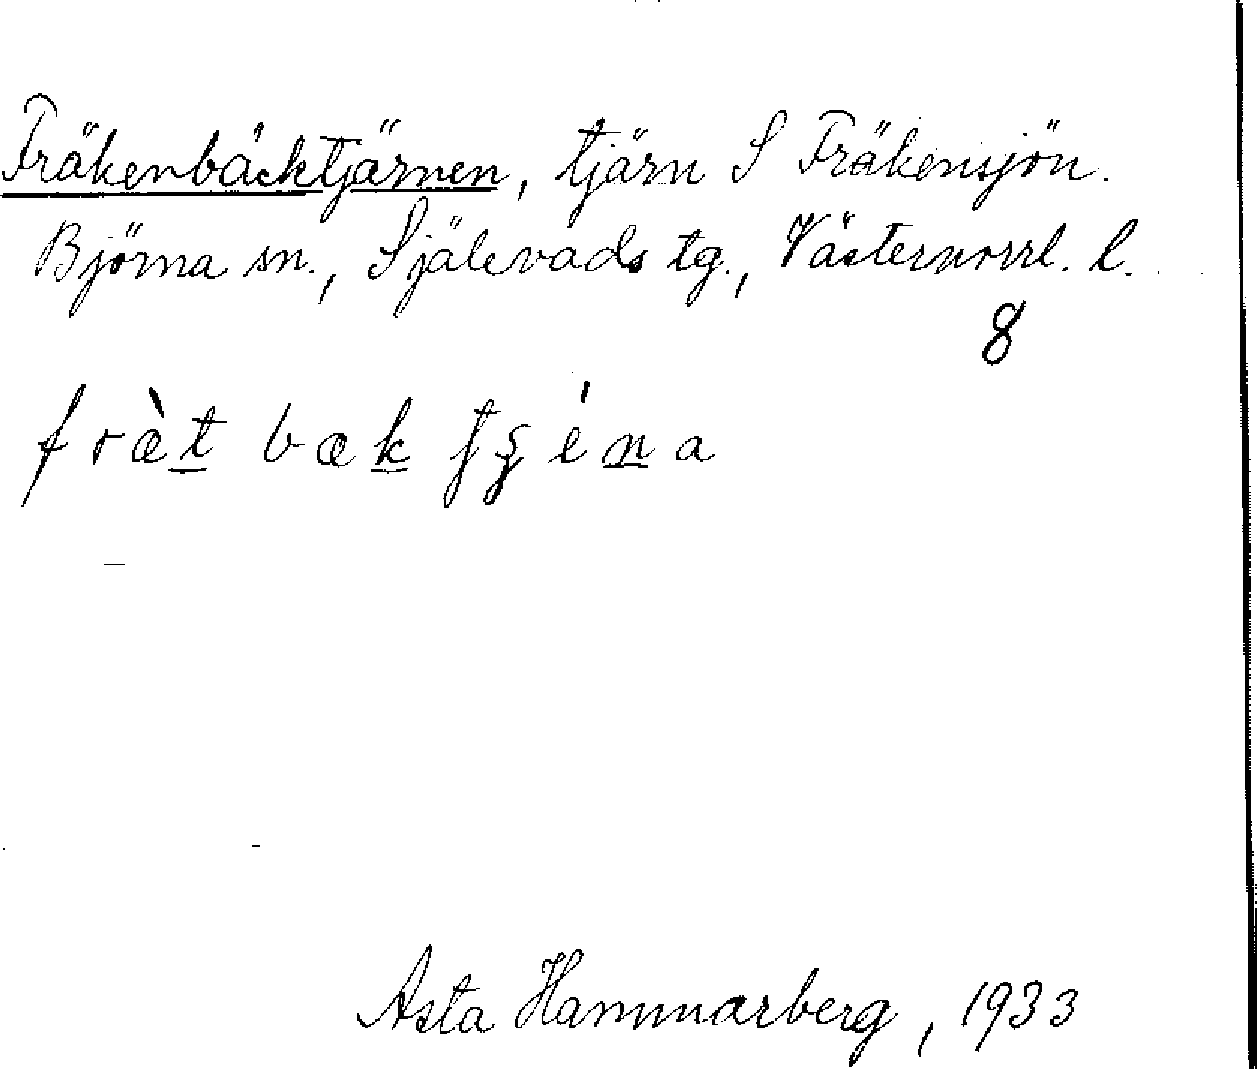 Fräkenbäcktjärnen, tjärn S Fräkensjön.
Björna sn., Själevads tg., Västernorrl. l.
8
fræ̀t bæk
Asta Hammarberg, 1933